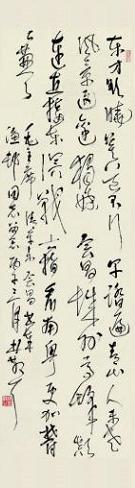 东方欲晓莫道君行早踏遍青山人未老
风景这边独好会昌城外高峰颠
连直接东溟战士指看南粤更加郁
郁葱葱毛主席清平乐会昌
同志